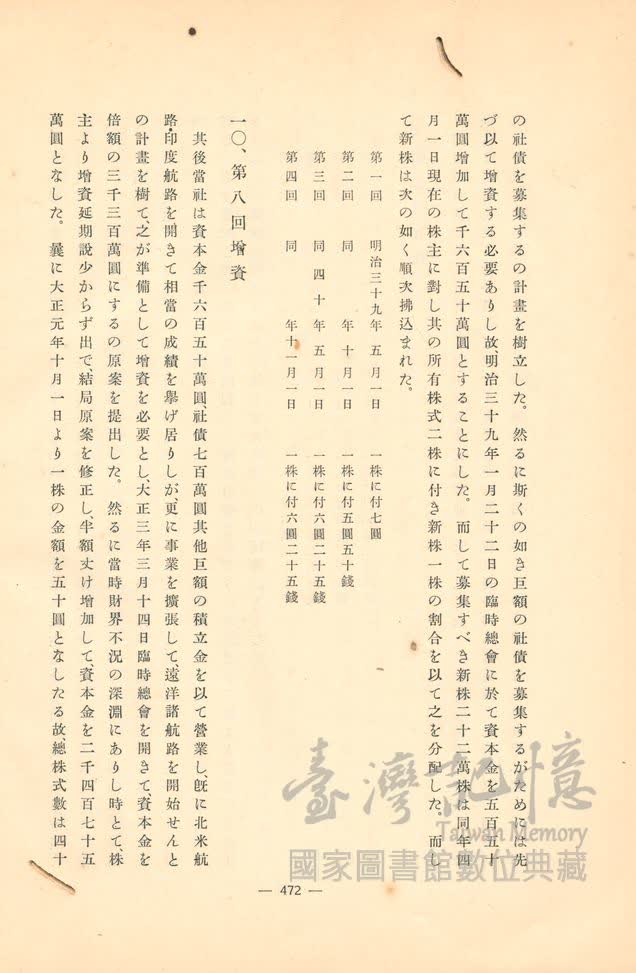 の社債を募集するの計畫を樹立した。然るに斯くの如き巨額の社債を募集するがためには先
づ以て增資する必要ありし故、明治三十九年一月二十二日の臨時總會に於て資本金を五百五十
萬圓增加して千六百五十萬圓とすることにした。而して募集すべき新株二十二萬株は同年四
月一日現在の株主に對し其の所有株式二株に付き新株一株の割合を以て之を分配した。而し
て新株は次の如く順次拂込まれた。
第一回 明治三十九年 五月一日 一株に付七圓
第二回 同 年 十月一日 一株に付五圓五十錢
第三回 同 四十 年 五月一日 一株に付六圓二十五錢
第四回 同 年十一月一日 一株に付六圓二十五錢
一〇、第八回增資
其後當社は資本金千六百五十萬圓社債七百萬圓其他巨額の積立金を以て營業し、旣に北米航
路・印度航路を開きて相當の成績を擧げ居りしが、更に事業を擴張して、遠洋諸航路を開始せんと
の計畫を樹て、之が準備として增資を必要とし、大正三年三月十四日臨時總會を開きて、資本金を
倍額の三千三百萬圓にするの原案を提出した。然るに當時財界不況の深淵にありし時とて、株
主より增資延期說少からず出で、結局原案を修正し、半額丈け增加して、資本金を二千四百七十五
萬圓となした。曩に大正元年十月一日より一株の金額を五十圓となしたる故、總株式數は四十
— 472 —
臺灣記憶
Taiwan Memory
國家圖書館數位典藏